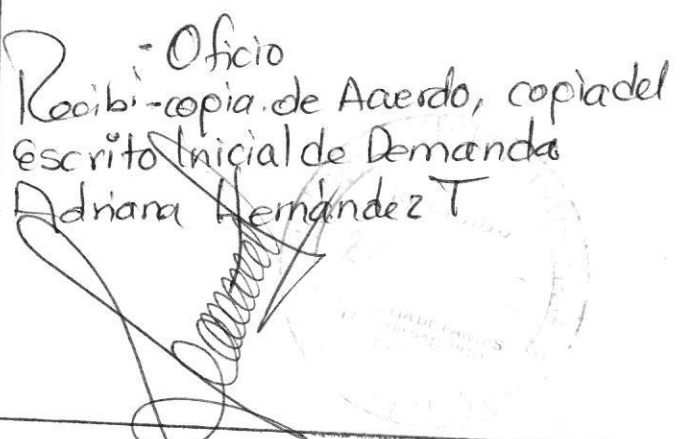 - Oficio
Recibi-copia de Acuerdo, copia del
escrito Inicial de Demanda
Adriana Hernández T